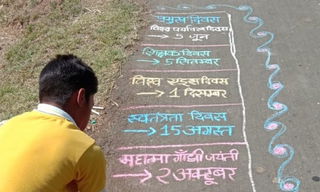 प्रमुख दिवस
विश्व पर्यावरण दिवस
→ 5 जून
शिक्षक दिवस
→ 5 सितम्बर
विश्व एड्स दिवस
→ 1 दिसम्बर
स्वतंत्रता दिवस
→ 15 अगस्त
महात्मा गाँधी जयंती
→ 2 अक्टूबर